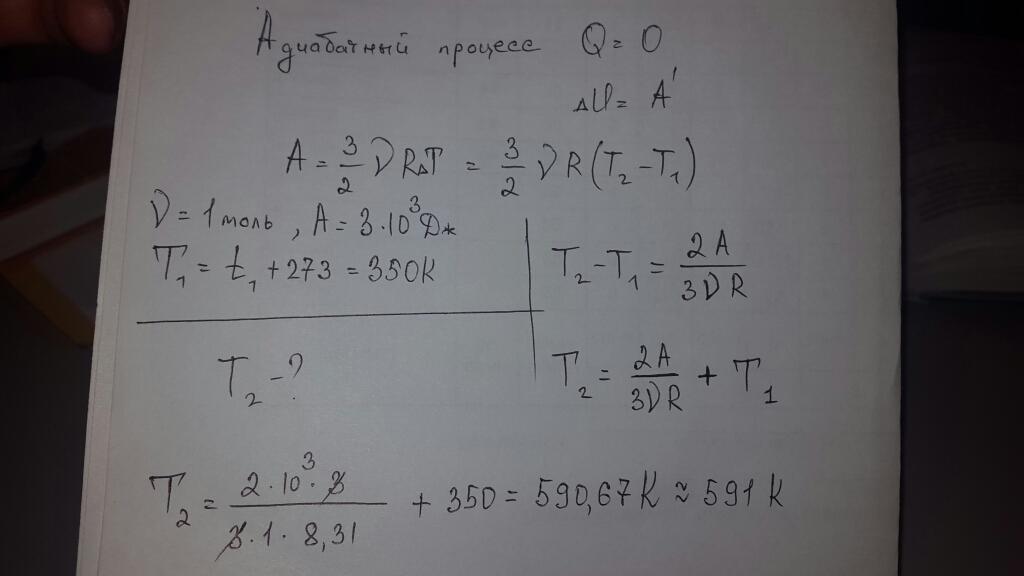 Адиабатный процесс Q = 0
ΔU = A'
A = 3/2 ν R ΔT = 3/2 ν R (T₂ – T₁)
ν = 1 моль , A = 3·10³ Дж
T₁ = t₁ + 273 = 350K
T₂ – ?
T₂ – T₁ = 2A / 3νR
T₂ = 2A / 3νR + T₁
T₂ = 2·10³·3 / 3·1·8,31 + 350 = 590,67 K ≈ 591 K